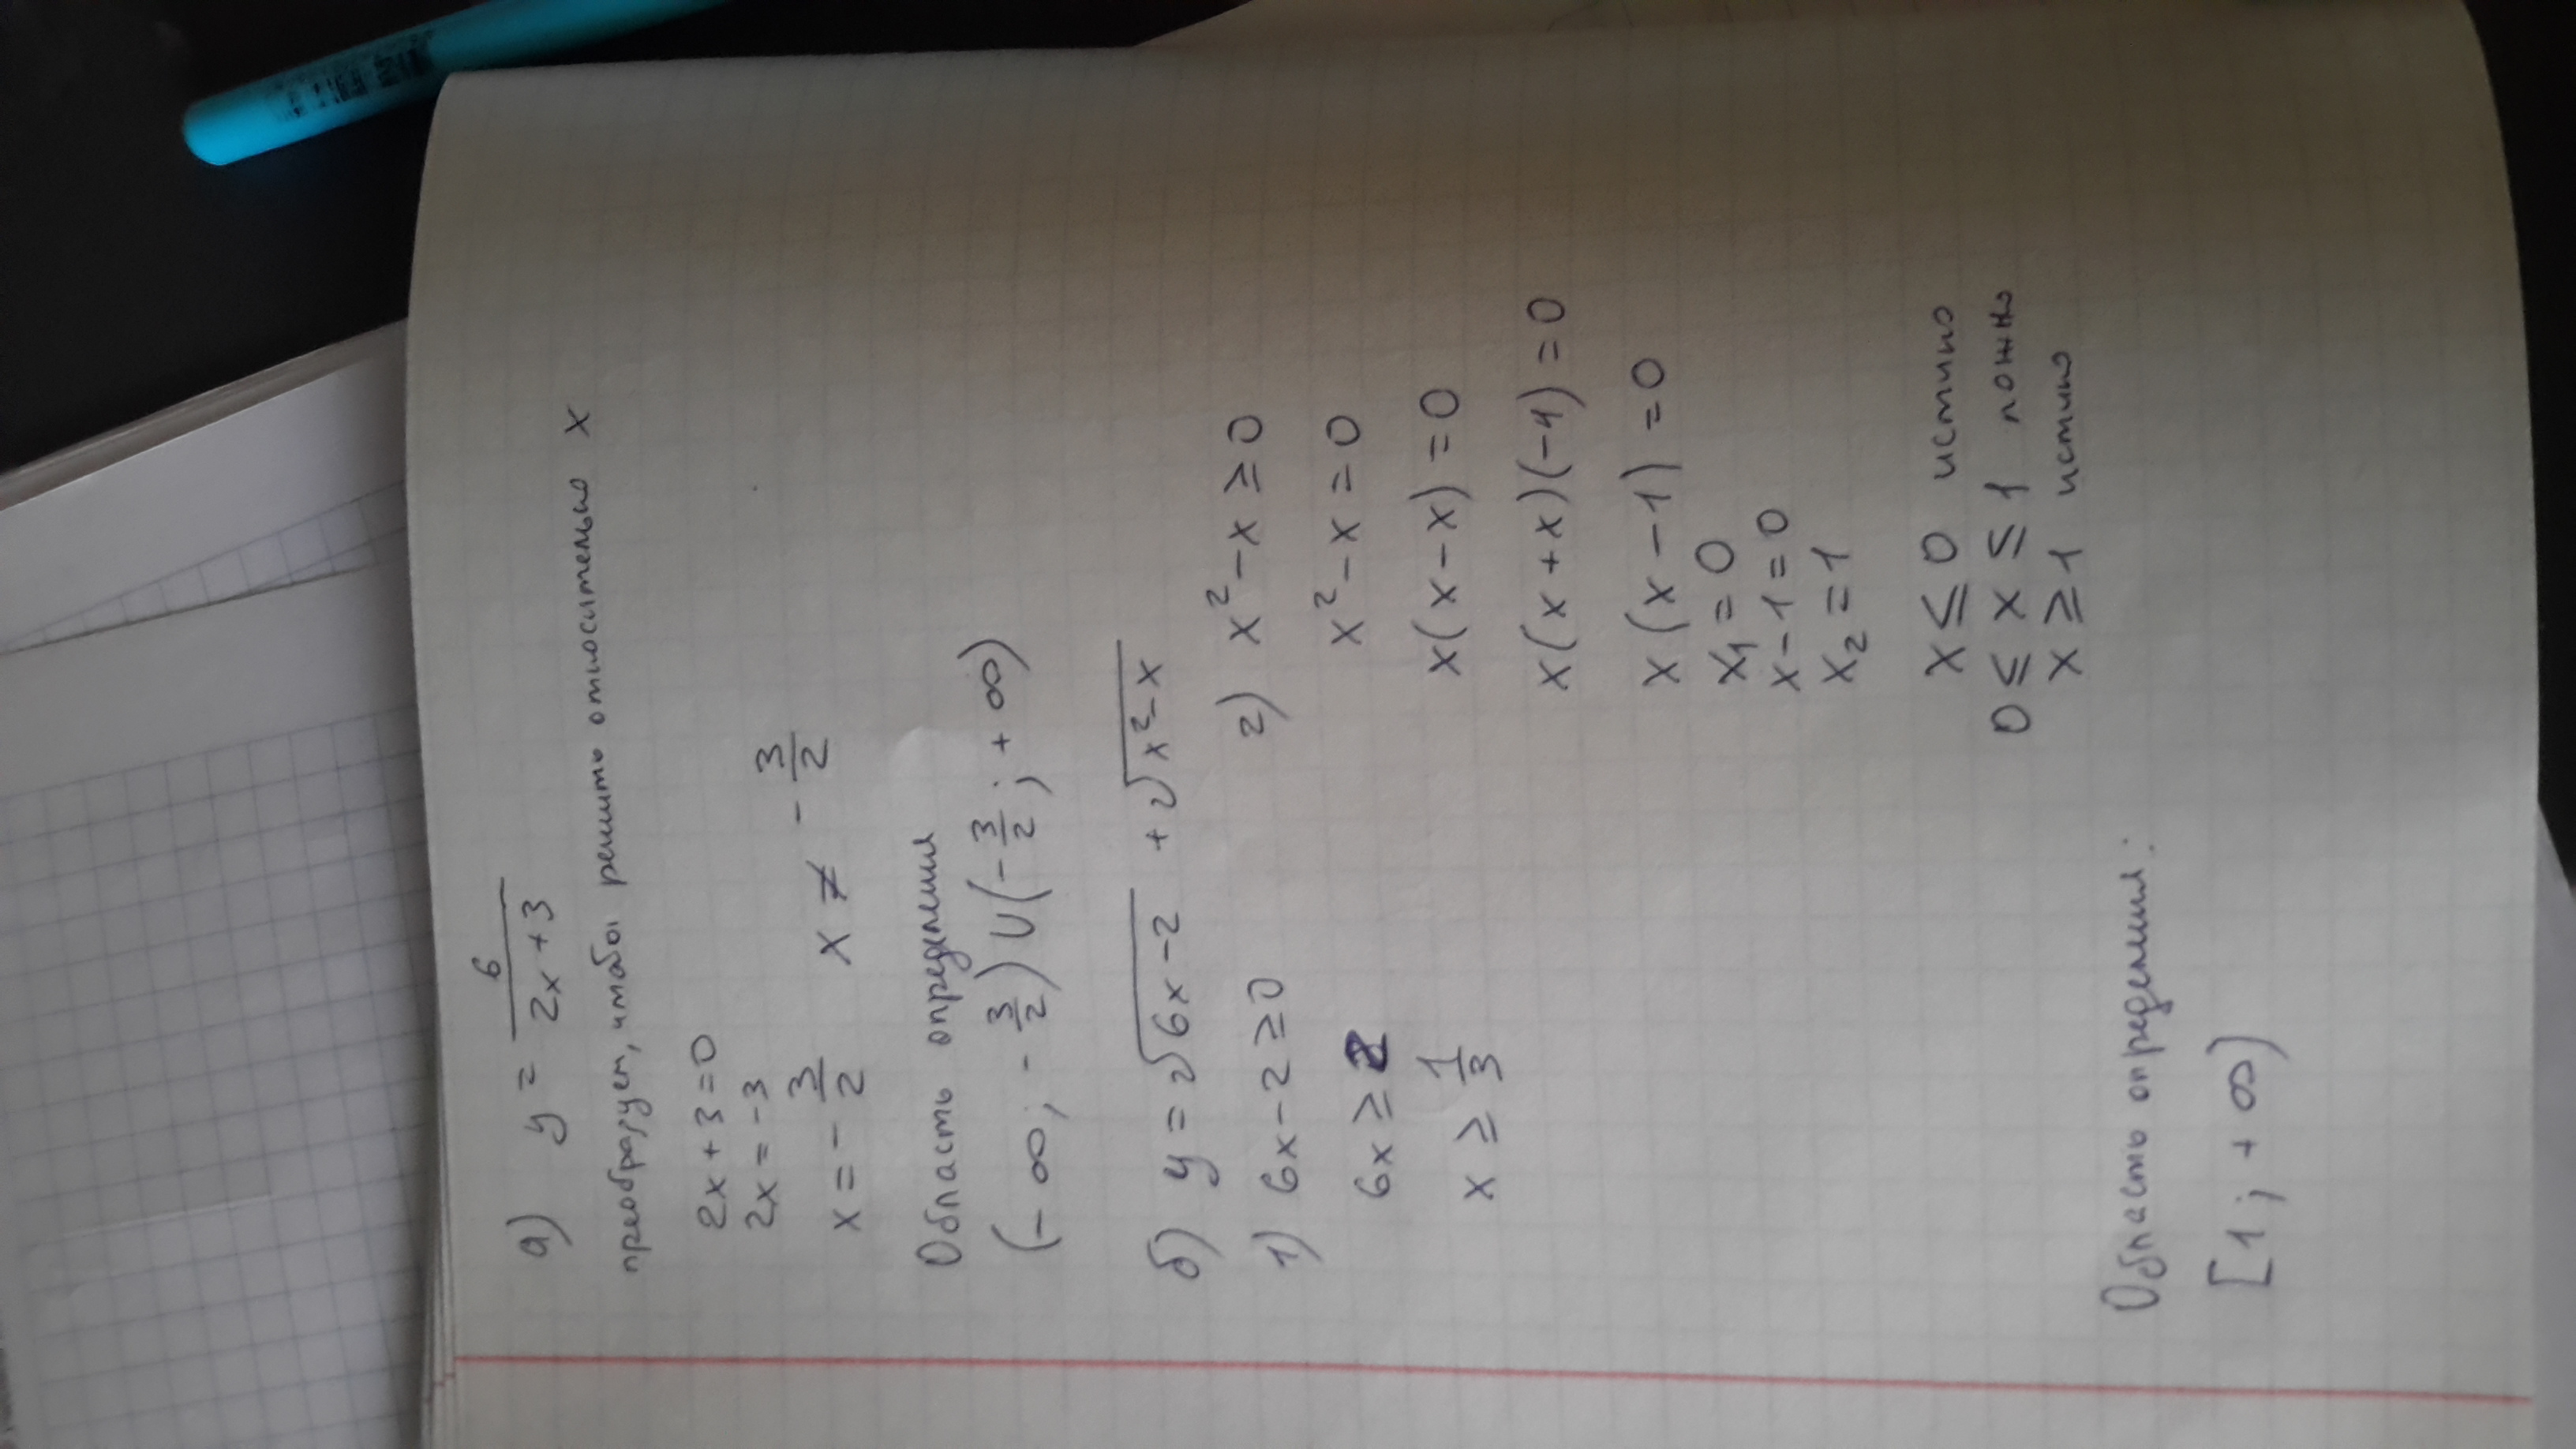 а) y = 6/(2x+3)
преобразуем, чтобы решить относительно x
2x+3=0
2x=-3
x=-3/2    x ≠ -3/2
Область определения
(-∞; -3/2) ∪ (-3/2; +∞)
б) y = √(6x-2) + √(x²-x)
1) 6x-2≥0    2) x²-x≥0
6x≥2    x²-x=0
x≥1/3    x(x-x)=0
x(x+x)(-1)=0
x(x-1)=0
x₁=0
x-1=0
x₂=1
x≤0 истино
0≤x≤1 ложно
x≥1 истино
Область определения:
[1; +∞)